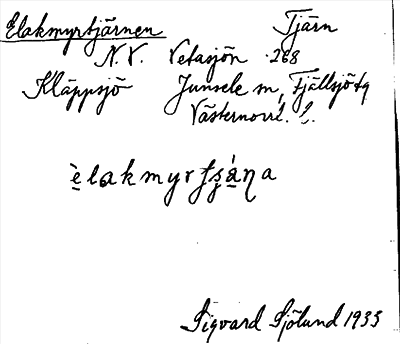 Elakmyrtjärnen Tjärn
N.V. Vetasjön 268
Kläppsjö Junsele sn, Fjällsjö tg
Västernorrl. l.
èlakmyrtʂána
Sigvard Sjölund 1933